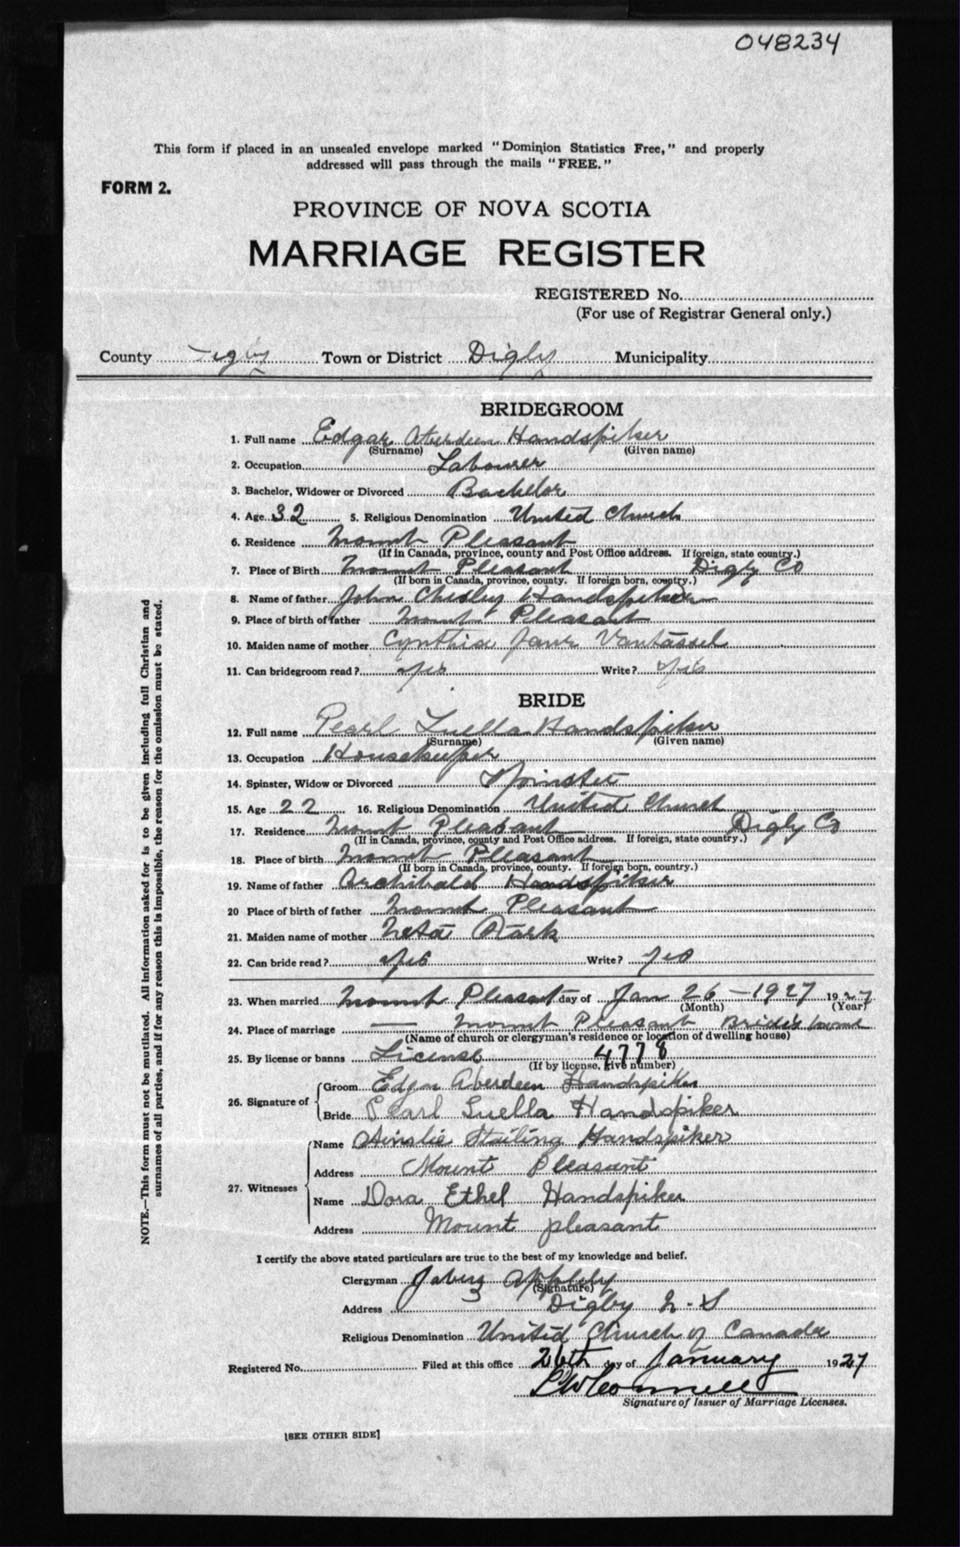 048234
This form if placed in an unsealed envelope marked "Dominion Statistics Free," and properly
addressed will pass through the mails "FREE."
FORM 2.
PROVINCE OF NOVA SCOTIA
MARRIAGE REGISTER
REGISTERED No.
(For use of Registrar General only.)
County Digby Town or District Digby Municipality
BRIDEGROOM
1. Full name Edgar Aberdeen Handspiker
(Surname) (Given name)
2. Occupation Labourer
3. Bachelor, Widower or Divorced Bachelor
4. Age 32 5. Religious Denomination United Church
6. Residence Mount Pleasant
(If in Canada, province, county and Post Office address. If foreign, state country.)
7. Place of Birth Mount Pleasant Digby Co
(If born in Canada, province, county. If foreign born, country.)
8. Name of father John Chesley Handspiker
9. Place of birth of father Mount Pleasant
10. Maiden name of mother Cynthia Jane Vantassel
11. Can bridegroom read? yes Write? yes
BRIDE
12. Full name Pearl Luella Handspiker
(Surname) (Given name)
13. Occupation Housekeeper
14. Spinster, Widow or Divorced Spinster
15. Age 22 16. Religious Denomination United Church
17. Residence Mount Pleasant Digby Co
(If in Canada, province, county and Post Office address. If foreign, state country.)
18. Place of birth Mount Pleasant
(If born in Canada, province, county. If foreign born, country.)
19. Name of father Archibald Handspiker
20 Place of birth of father Mount Pleasant
21. Maiden name of mother
22. Can bride read? yes Write? yes
23. When married Mount Pleasant day of Jan 26 - 1927 1927
(Month) (Year)
24. Place of marriage — Mount Pleasant Bride's home
(Name of church or clergyman's residence or location of dwelling house)
25. By license or banns License 4778
(If by license, give number)
26. Signature of Groom Edgar Aberdeen Handspiker
Bride Pearl Luella Handspiker
27. Witnesses Name Ainslie Handspiker
Address Mount Pleasant
Name Dora Ethel Handspiker
Address Mount pleasant
I certify the above stated particulars are true to the best of my knowledge and belief.
Clergyman Jabez Appleby
(Signature)
Address Digby N.S
Religious Denomination United Church of Canada
Registered No. Filed at this office 26th day of January 1927
Signature of Issuer of Marriage Licenses.
[SEE OTHER SIDE]
NOTE.—This form must not be mutilated. All information asked for is to be given including full Christian and
surnames of all parties, and if for any reason this is impossible, the reason for the omission must be stated.